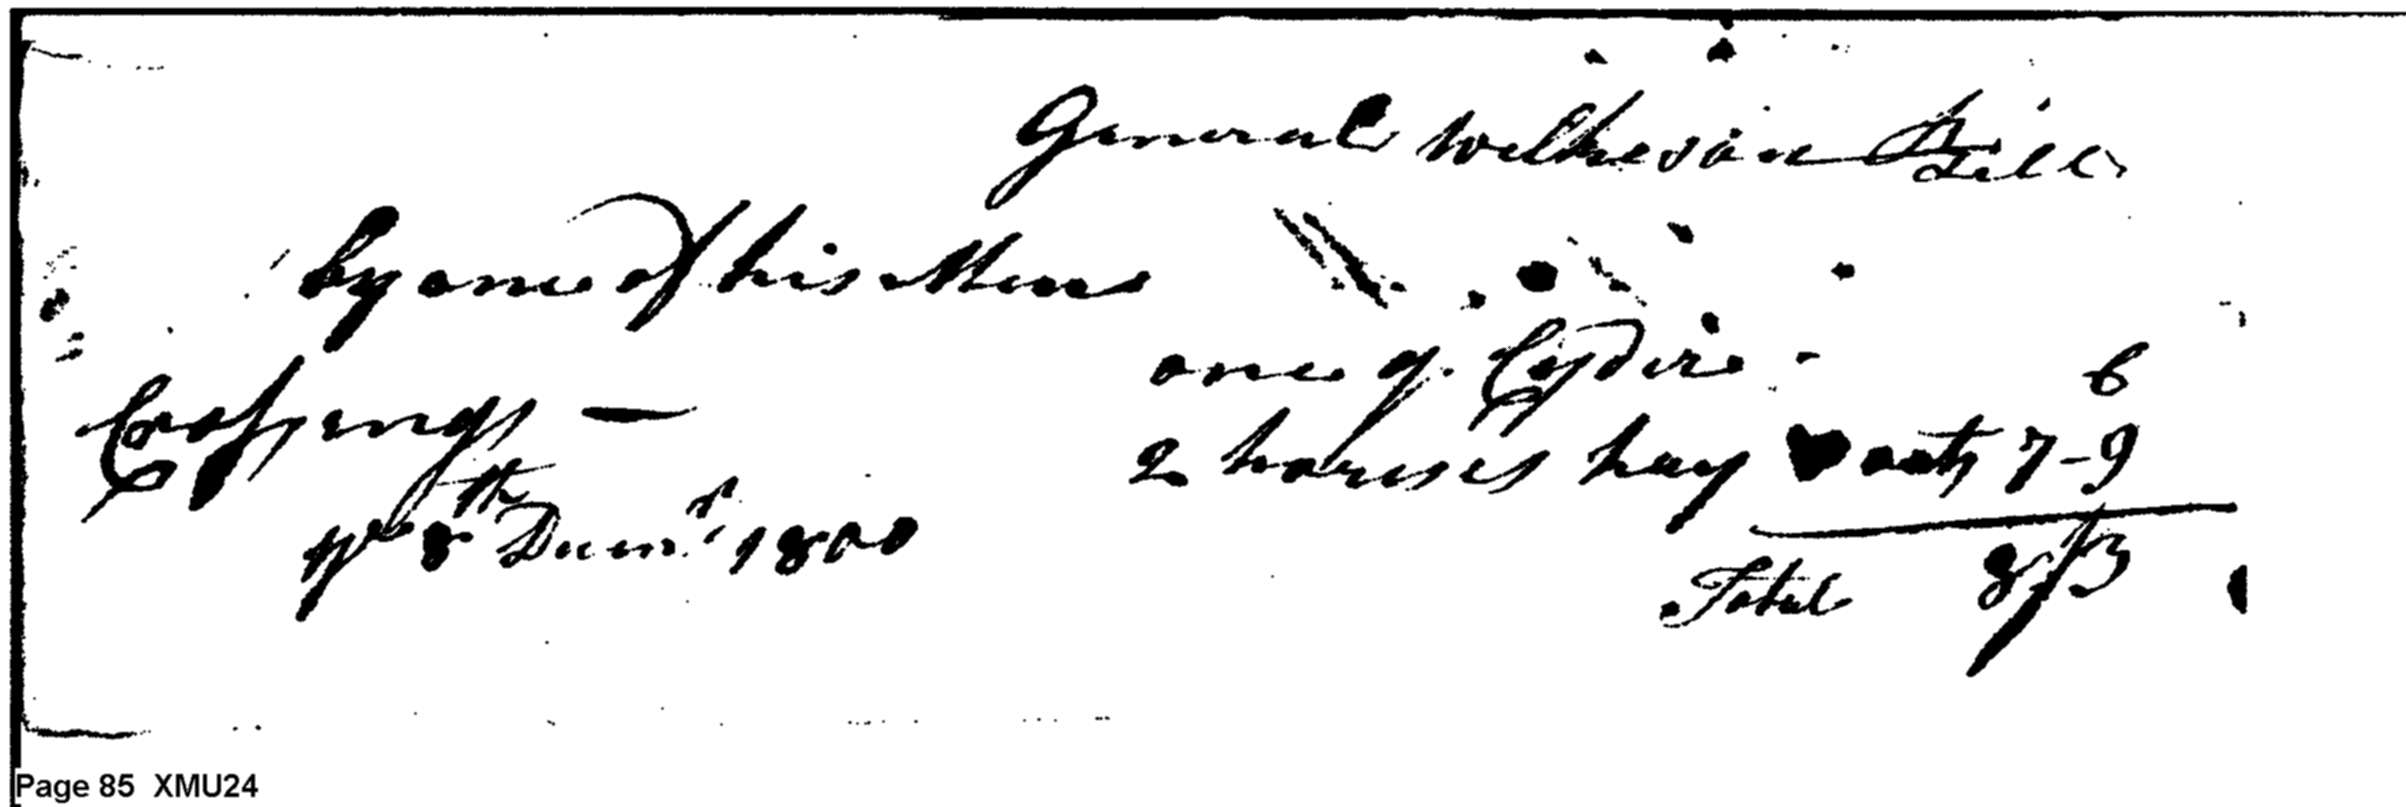 General Wilkeson Bill
by one of his Men
one q. Cyder 6
2 horses hay oats 7-9
Total 8/3
8th Decmr 1800
Page 85 XMU24